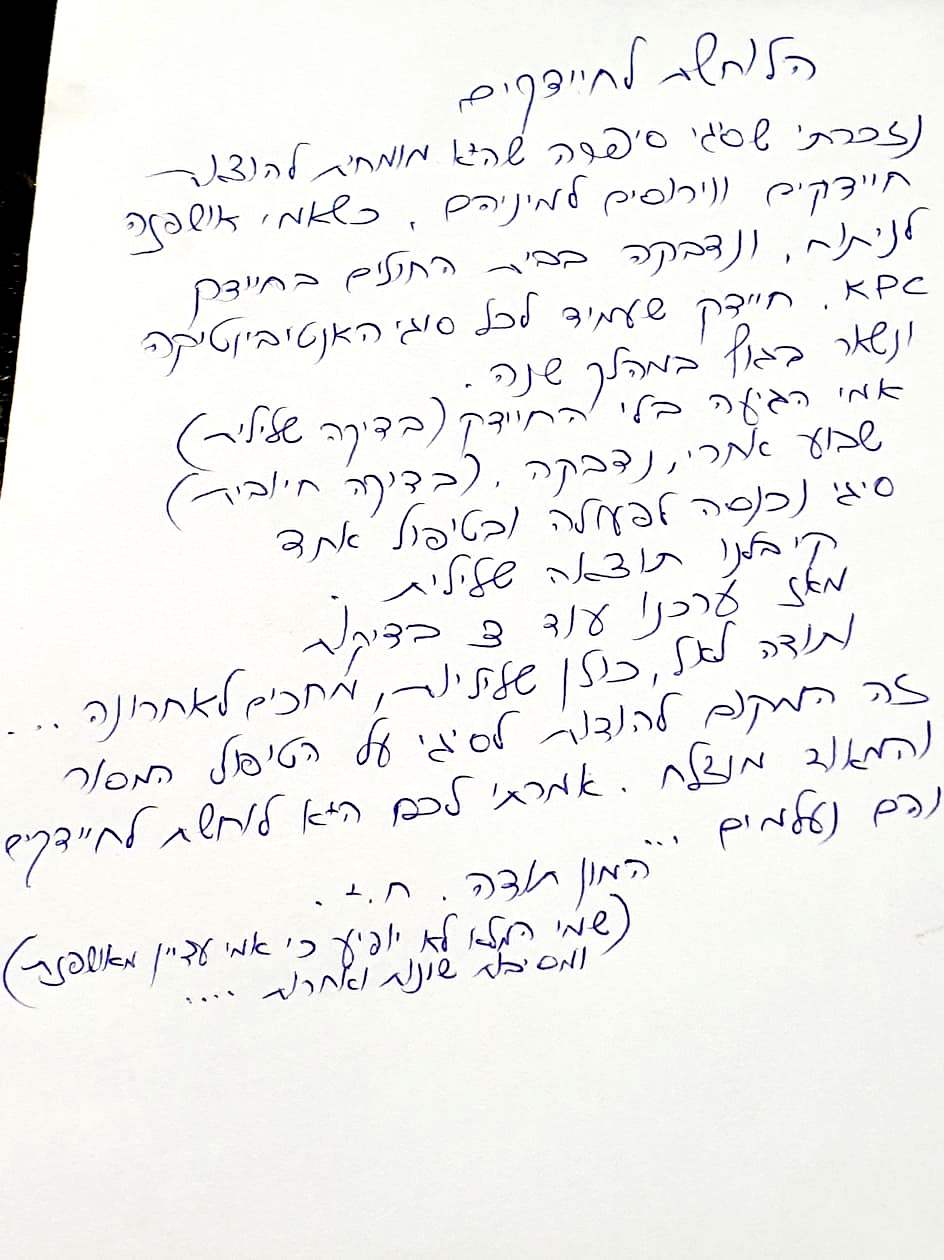 הלוחשת לחיידקים
נזכרתי שסיגי סיפרה שהיא מומחית להוצאת
חיידקים ווירוסים למיניהם. כשאמי אושפזה
לניתוח, ונדבקה בבית החולים בחיידק
KPC. חיידק שעמיד לכל סוגי האנטיביוטיקה
ונשאר בגוף במהלך שנה.
אמי הגיעה בלי החיידק (בדיקה שלילית)
שבוע אחרי, נדבקה. (בדיקה חיובית)
סיגי נכנסה לפעולה ובטיפול אחד
קיבלנו תוצאה שלילית.
מאז ערכנו עוד 3 בדיקות
ותודה לאל, כולן שליליות, מחכים לאחרונה...
זה המקום להודות לסיגי על הטיפול המסור
והמאוד מוצלח. אמרתי לכם היא לוחשת לחיידקים
והם נעלמים...
המון תודה. ח.
(שמי המלא לא יופיע כי אמי עדיין מאושפזת)
ומסיבות שונות ואחרות....